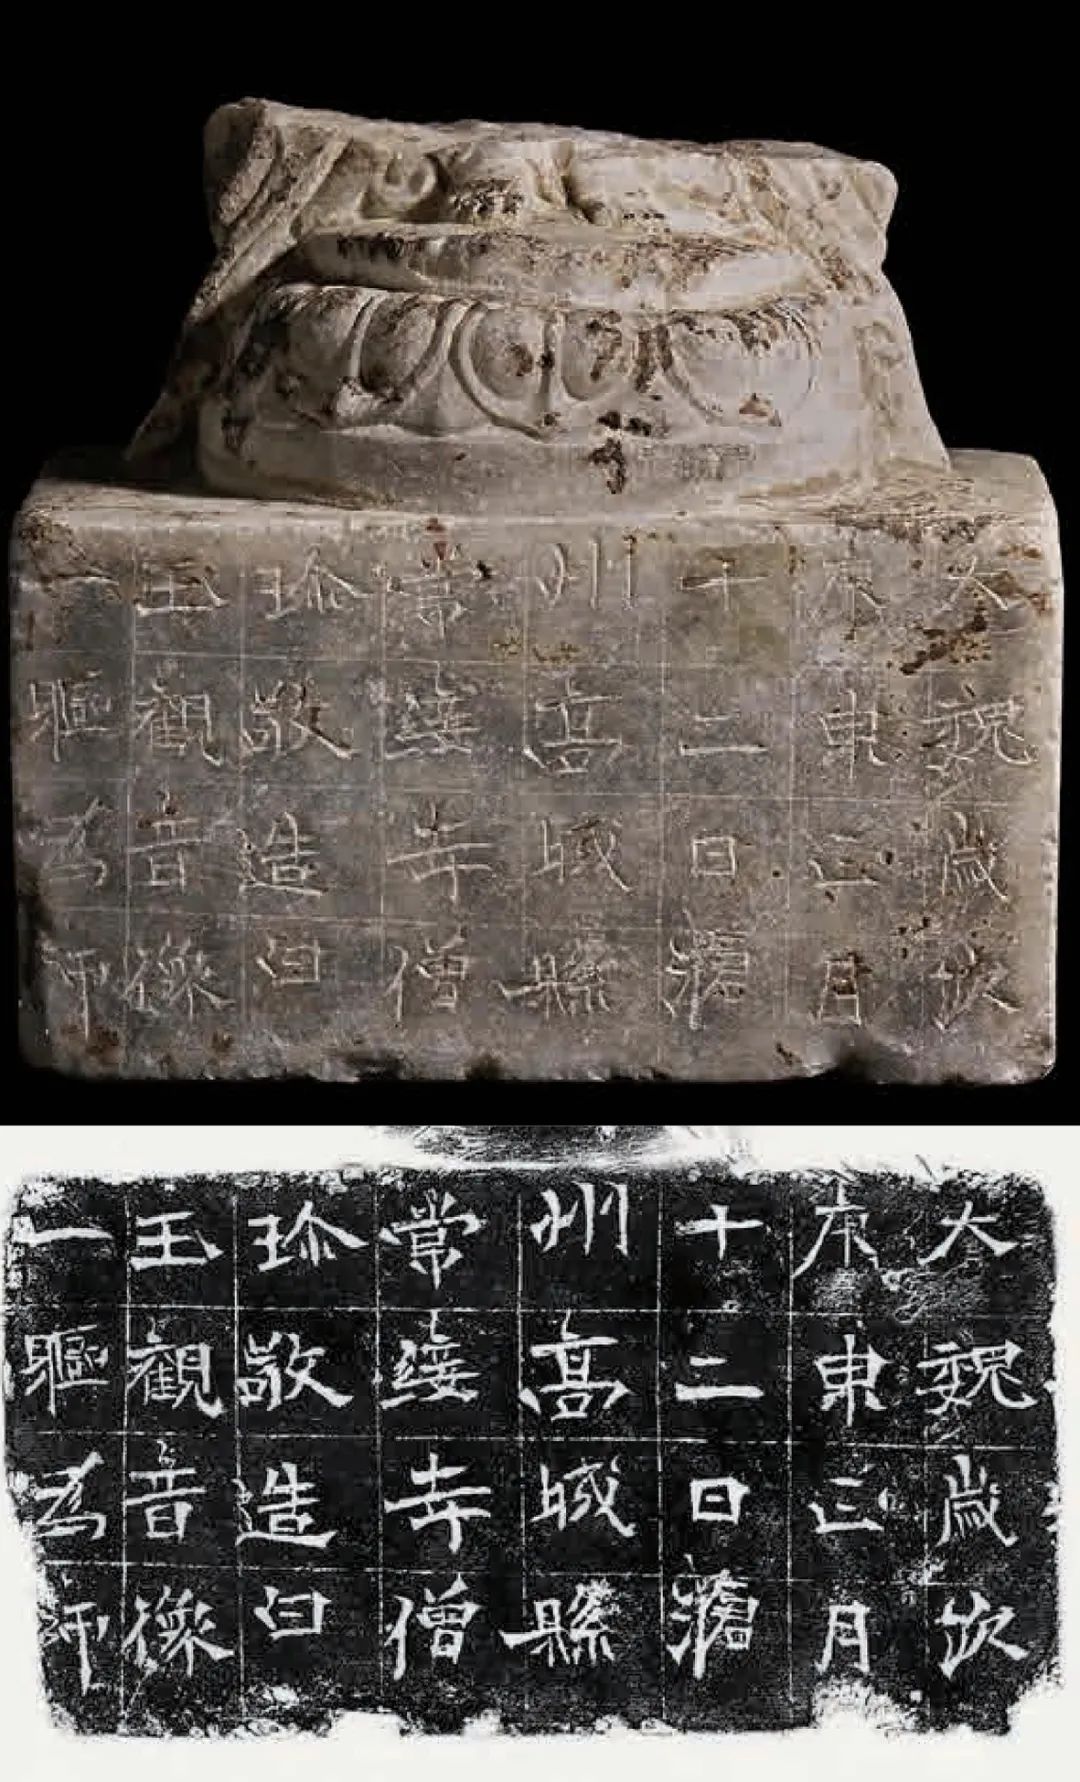 大魏歲次
庚申正月
十二日滄
州高城縣
常綏寺僧
珎敬造白
玉觀音像
一軀為師
大魏歲次
庚申正月
十二日滄
州高城縣
常綏寺僧
珎敬造白
玉觀音像
一軀為師